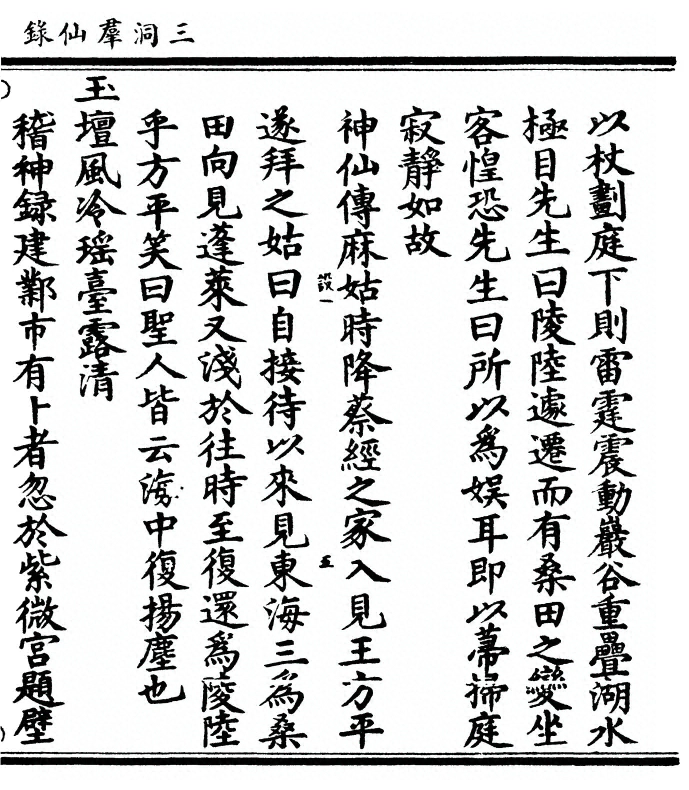 三洞羣仙錄
以杖劃庭下則雷霆震動巖谷重疊湖水
極目先生曰陵陸遽遷而有桑田之變坐
客惶恐先生曰所以爲娱耳即以菷掃庭
寂靜如故
神仙傳麻姑時降蔡經之家入見王方平
設一
五
遂拜之姑曰自接待以來見東海三為桑
田向見蓬萊又淺於往時至復還爲陵陸
乎方平笑曰聖人皆云海中復揚塵也
玉壇風冷瑶臺露清
稽神録建鄴市有卜者忽於紫微宫題壁